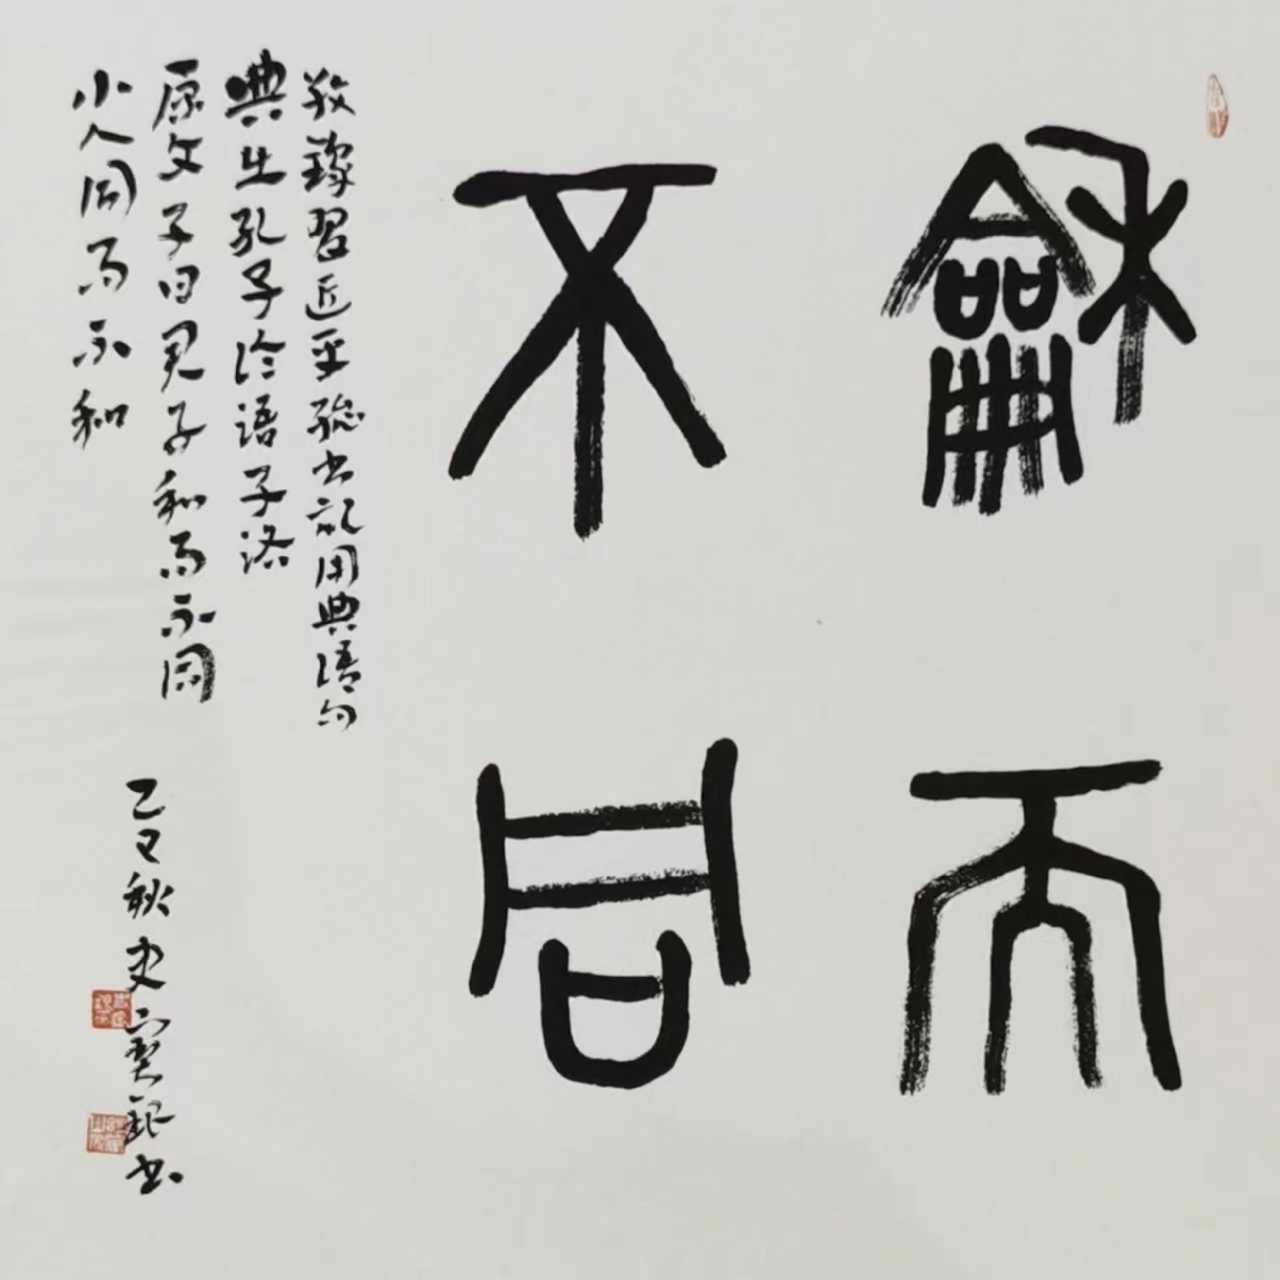 龢而
不同
敬錄習近平総书記用典语句
典出孔子论语子路
原文子曰君子和而不同
小人同而不和
乙巳秋史书